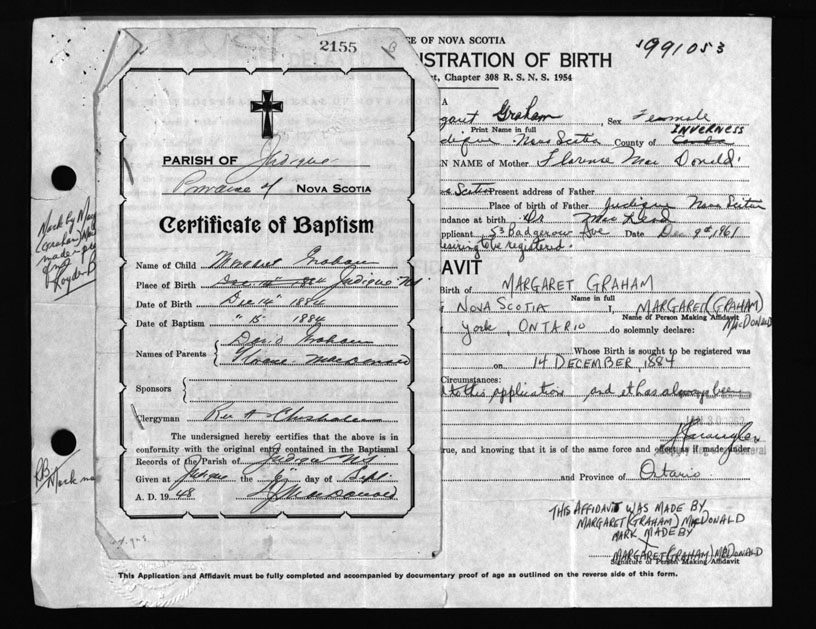 2155
PARISH OF Judique
Province of NOVA SCOTIA
Certificate of Baptism
Name of Child Margaret Graham
Place of Birth Judique NS
Date of Birth Dec 14" 1884
Date of Baptism " 15" 1884
Names of Parents { David Graham
Florence MacDonald
Sponsors {
Clergyman Rev A Chisholm
The undersigned hereby certifies that the above is in
conformity with the original entry contained in the Baptismal
Records of the Parish of Judique NS
Given at Judique the 6" day of Sept.
A. D. 1948 MacDonald
CE OF NOVA SCOTIA
991053
ISTRATION OF BIRTH
Chapter 308 R. S. N. S. 1954
Graham, Sex Female
Print Name in full
INVERNESS
Nova Scotia County of
N NAME of Mother Florence Mac Donald
Scotia Present address of Father
Place of birth of Father Judique Nova Scotia
ndance at birth Dr MacLeod
pplicant 53 Badgerow Ave Date Dec 9th, 1961
esiring to be registered.
AVIT
Birth of MARGARET GRAHAM
Name in full
NOVA SCOTIA I, MARGARET (GRAHAM)
Name of Person Making Affidavit
MacDONALD
York, ONTARIO do solemnly declare:
Whose Birth is sought to be registered was
on 14 DECEMBER, 1884
Circumstances:
to this application and it has always been
rue, and knowing that it is of the same force and effect as if made under
and Province of Ontario
THIS AFFIDAVIT WAS MADE BY
MARGARET (GRAHAM) MacDONALD
MARK MADE BY
X
MARGARET (GRAHAM) McDONALD
Signature of Person Making Affidavit
This Application and Affidavit must be fully completed and accompanied by documentary proof of age as outlined on the reverse side of this form.